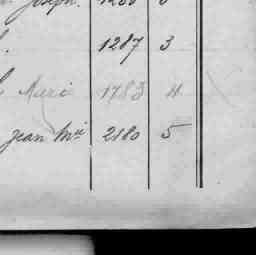 Joseph.
. 1287 3
Marie 1783 4
jean Mie 2180 5